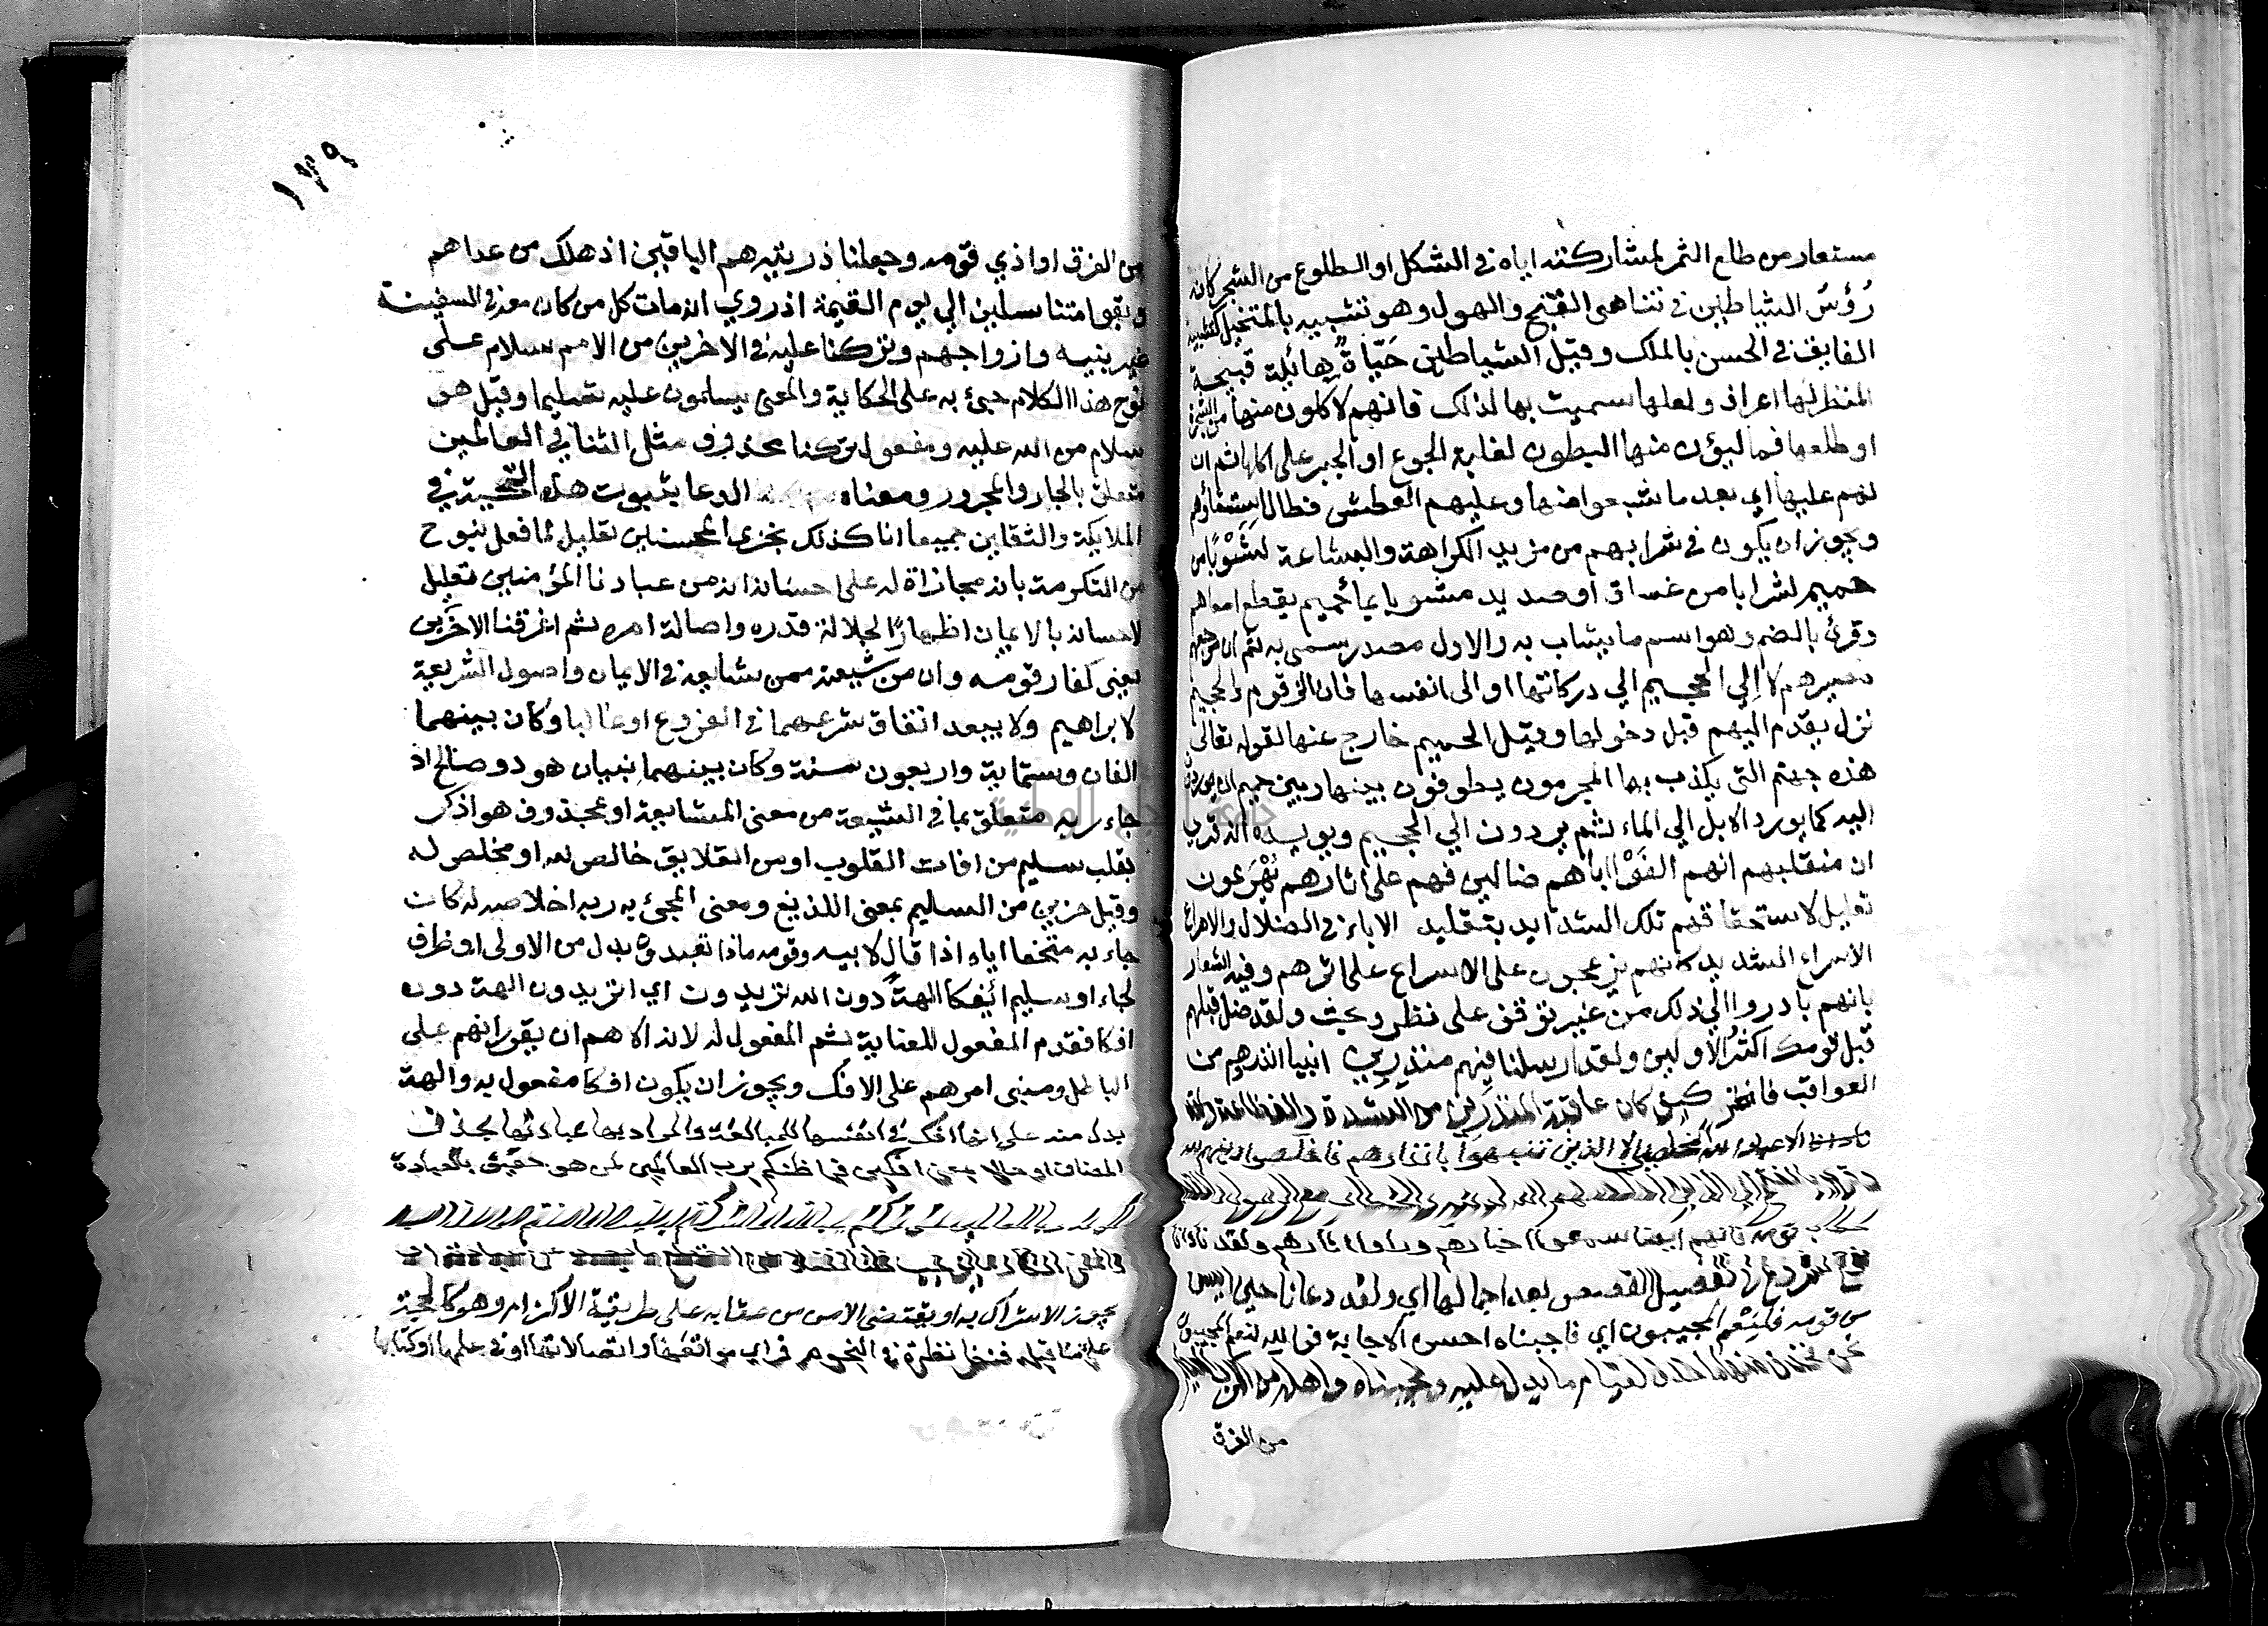 مستعار من طلع الثمر لمشاركته اياه في الشكل او الطلوع من الشجر كانه
رؤس الشياطين في تناهى القبح والهول وهو تشبيه بالمتخيل كتشبيه
الفايق في الحسن بالملك وقيل الشياطين حيات هائلة قبيحة
المنظر لها اعراف ولعلها سميت بها لذلك فانهم لاكلون منها من الشجرة
او طلعها فمالؤن منها البطون لغلبة الجوع او الجبر على اكلها ثم ان
لهم عليها اي بعد ما شبعوا منها وعليهم العطش وطال استسقاؤهم
ويجوز ان يكون في شرابهم من مزيد الكراهة والبشاعة لشوبا من
حميم لشرابا من غساق او صديد مشوبا بماء حميم يقطع امعاهم
وقرئ بالضم وهو اسم ما يشاب به والاول مصدر سمى به ثم ان مرجعهم
مصيرهم لالي الجحيم الي دركاتها او الى انفسها فان الزقوم والحميم
نزل يقدم اليهم قبل دخولها وقيل الحميم خارج عنها لقوله تعالى
هذه جهنم التى يكذب بها المجرمون يطوفون بينها وبين حميم ان يوردون
اليه كما يورد الابل الي الماء ثم يردون الي الجحيم ويويده انه قرئ
ان منقلبهم انهم الفوا اباءهم ضالين فهم على اثارهم يهرعون
تعليل لاستحقاقهم تلك الشدايد بتقليد الاباء في الضلال والاهراع
الاسراع الشديد كانهم يزعجون على الاسراع على اثرهم وفيه اشعار
بانهم بادروا الي ذلك من غير توقف على نظر وبحث ولقد ضل قبلهم
قبل قومك اكثر الاولين ولقد ارسلنا فيهم منذرين انبيا انذروهم من
العواقب فانظر كيف كان عاقبة المنذرين من الشدة والفظاعة
الا عباد الله المخلصين الا الذين تنبهوا بانذارهم فاخلصوا دينهم لله
قومه فانهم ايضا سمعوا اخبارهم وراوا اثارهم ولقد نادانا
نوح شروع في تفصيل القصص بعد اجمالها اي ولقد دعانا حين ايس
من قومه فلنعم المجيبون اي فاجبناه احسن الاجابة فوالله لنعم المجيبون
نحن فحذف منها ما حذف لقيام ما يدل عليه ونجيناه واهله من الكرب العظيم
من الغرق
١٧٩
من الغرق او اذي قومه وجعلنا ذريته هم الباقين اذ هلك من عداهم
وبقوا متناسلين الي يوم القيمة اذ روي انه مات كل من كان معه في السفينة
غير بنيه وازواجهم وتركنا عليه في الاخرين من الامم سلام على
نوح هذا الكلام جئ به على الحكاية والمعنى يسلمون عليه تسليما وقيل هو
سلام من الله عليه ومفعول تركنا محذوف مثل الثنا في العالمين
متعلق بالجار والمجرور ومعناه الدعا بثبوت هذه التحية في
الملايكة والثقلين جميعا انا كذلك نجزى المحسنين تعليل لما فعل بنوح
من التكرمة بانه مجازاة له على احسانه انه من عبادنا المؤمنين تعليل
لاحسانه بالايمان اظهارا لجلالة قدره واصالة امره ثم اغرقنا الاخرين
يعنى كفار قومه وان من شيعته ممن شايعه في الايمان واصول الشريعة
لابراهيم ولا يبعد اتفاق شرعهما في الفروع او غالبا وكان بينهما
الفان وستماية واربعون سنة وكان بينهما نبيان هود وصالح اذ
جاء ربه متعلق بما في الشيعة من معنى المشايعة او بمحذوف هو اذكر
بقلب سليم من افات القلوب او من العلايق خالص لله او مخلص له
وقيل حزين من السليم بمعنى اللديغ ومعنى المجئ به ربه اخلاصه له كانه
جاء به متحفا اياه اذ قال لابيه وقومه ماذا تعبدون بدل من الاولى او ظرف
لجاء او سليم ائفكا الهة دون الله تريدون اي اتريدون الهة دون
افكا فقدم المفعول للعناية ثم المفعول له لانه الاهم ان يقرر انهم على
الباطل ومبنى امرهم على الافك ويجوز ان يكون افكا مفعول به والهة
بدل منه على انها افك في انفسها للمبالغة والمراد بها عبادتها بحذف
المضاف او حالا بمعنى افكين فما ظنكم برب العالمين لمن هو حقيق بالعبادة
يجوز الاشراك به او يقتضى الامن من عقابه على طريقة الالزام وهو كالحجة
على ما قبله فنظر نظرة في النجوم فراى مواقعها واتصالاتها او في علمها او كتابها